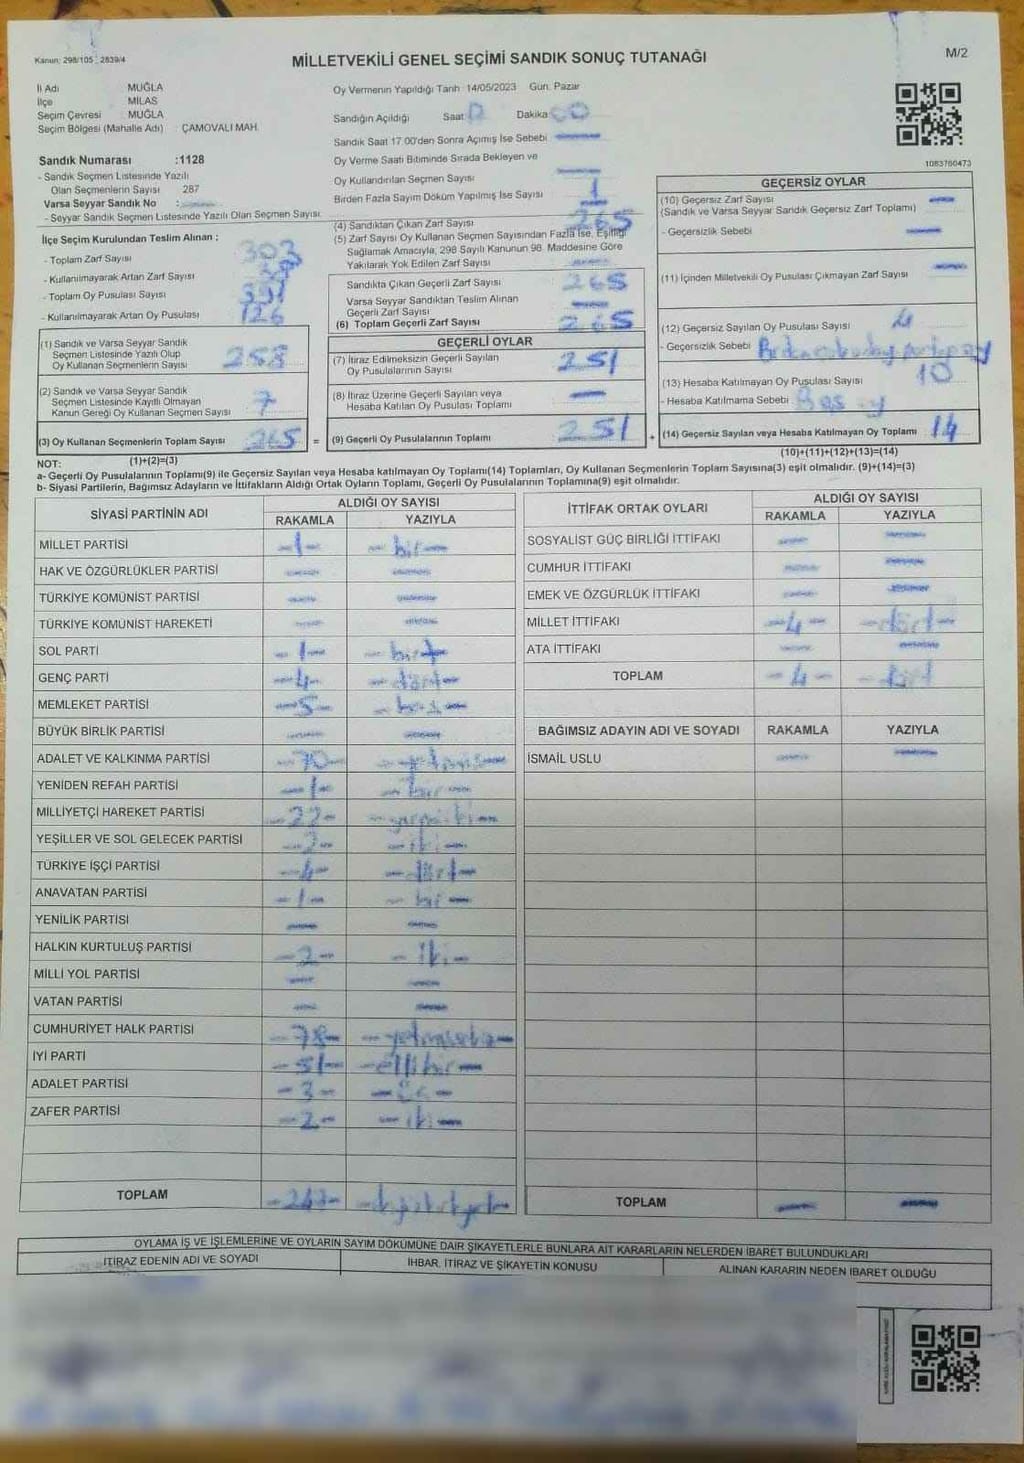 Kanun: 298/105 2839/4
MİLLETVEKİLİ GENEL SEÇİMİ SANDIK SONUÇ TUTANAĞI
M/2
İl Adı MUĞLA
İlçe MİLAS
Seçim Çevresi MUĞLA
Seçim Bölgesi (Mahalle Adı) : ÇAMOVALI MAH.
Oy Vermenin Yapıldığı Tarih 14/05/2023 Gün: Pazar
Sandığın Açıldığı Saat Dakika 00
Sandık Saat 17.00'den Sonra Açımış İse Sebebi
Oy Verme Saati Bitiminde Sırada Bekleyen ve
Oy Kullandırılan Seçmen Sayısı
Birden Fazla Sayım Döküm Yapılmış İse Sayısı 1
1083760473
Sandık Numarası :1128
- Sandık Seçmen Listesinde Yazılı
Olan Seçmenlerin Sayısı 287
Varsa Seyyar Sandık No :
- Seyyar Sandık Seçmen Listesinde Yazılı Olan Seçmen Sayısı
İlçe Seçim Kurulundan Teslim Alınan ;
- Toplam Zarf Sayısı 303
- Kullanılmayarak Artan Zarf Sayısı
- Toplam Oy Pusulası Sayısı
- Kullanılmayarak Artan Oy Pusulası 126
(1) Sandık ve Varsa Seyyar Sandık
Seçmen Listesinde Yazılı Olup
Oy Kullanan Seçmenlerin Sayısı 258
(2) Sandık ve Varsa Seyyar Sandık
Seçmen Listesinde Kayıtlı Olmayan
Kanun Gereği Oy Kullanan Seçmen Sayısı 7
(3) Oy Kullanan Seçmenlerin Toplam Sayısı 265 =
(4) Sandıktan Çıkan Zarf Sayısı 265
(5) Zarf Sayısı Oy Kullanan Seçmen Sayısından Fazla İse, Eşitliği
Sağlamak Amacıyla, 298 Sayılı Kanunun 98. Maddesine Göre
Yakılarak Yok Edilen Zarf Sayısı
Sandıkta Çıkan Geçerli Zarf Sayısı 265
Varsa Seyyar Sandıktan Teslim Alınan
Geçerli Zarf Sayısı
(6) Toplam Geçerli Zarf Sayısı 265
GEÇERLİ OYLAR
(7) İtiraz Edilmeksizin Geçerli Sayılan
Oy Pusulalarının Sayısı 251
(8) İtiraz Üzerine Geçerli Sayılan veya
Hesaba Katılan Oy Pusulası Toplamı
(9) Geçerli Oy Pusulalarının Toplamı 251 +
GEÇERSİZ OYLAR
(10) Geçersiz Zarf Sayısı
(Sandık ve Varsa Seyyar Sandık Geçersiz Zarf Toplamı)
- Geçersizlik Sebebi
(11) İçinden Milletvekili Oy Pusulası Çıkmayan Zarf Sayısı
(12) Geçersiz Sayılan Oy Pusulası Sayısı 4
- Geçersizlik Sebebi
(13) Hesaba Katılmayan Oy Pusulası Sayısı 10
- Hesaba Katılmama Sebebi Boş oy
(14) Geçersiz Sayılan veya Hesaba Katılmayan Oy Toplamı 14
NOT: (1)+(2)=(3)
(10)+(11)+(12)+(13)=(14)
a- Geçerli Oy Pusulalarının Toplamı(9) ile Geçersiz Sayılan veya Hesaba katılmayan Oy Toplamı(14) Toplamları, Oy Kullanan Seçmenlerin Toplam Sayısına(3) eşit olmalıdır. (9)+(14)=(3)
b- Siyasi Partilerin, Bağımsız Adayların ve İttifakların Aldığı Ortak Oyların Toplamı, Geçerli Oy Pusulalarının Toplamına(9) eşit olmalıdır.
SİYASİ PARTİNİN ADI
ALDIĞI OY SAYISI
RAKAMLA YAZIYLA
MİLLET PARTİSİ -1- - bir -
HAK VE ÖZGÜRLÜKLER PARTİSİ
TÜRKİYE KOMÜNİST PARTİSİ
TÜRKİYE KOMÜNİST HAREKETİ
SOL PARTİ -1- - bir -
GENÇ PARTİ -4- - dört -
MEMLEKET PARTİSİ -5- - beş -
BÜYÜK BİRLİK PARTİSİ
ADALET VE KALKINMA PARTİSİ -70- - yetmiş -
YENİDEN REFAH PARTİSİ -1- - bir -
MİLLİYETÇİ HAREKET PARTİSİ -22- - yirmi iki -
YEŞİLLER VE SOL GELECEK PARTİSİ -2- - iki -
TÜRKİYE İŞÇİ PARTİSİ -4- - dört -
ANAVATAN PARTİSİ -1- - bir -
YENİLİK PARTİSİ
HALKIN KURTULUŞ PARTİSİ -2- - iki -
MİLLİ YOL PARTİSİ
VATAN PARTİSİ
CUMHURİYET HALK PARTİSİ -78- - yetmişsekiz -
İYİ PARTİ -51- - ellibir -
ADALET PARTİSİ -3- - üç -
ZAFER PARTİSİ -2- - iki -
TOPLAM -247-
İTTİFAK ORTAK OYLARI
ALDIĞI OY SAYISI
RAKAMLA YAZIYLA
SOSYALİST GÜÇ BİRLİĞİ İTTİFAKI
CUMHUR İTTİFAKI
EMEK VE ÖZGÜRLÜK İTTİFAKI
MİLLET İTTİFAKI -4- - dört -
ATA İTTİFAKI
TOPLAM - 4 - - dört
BAĞIMSIZ ADAYIN ADI VE SOYADI RAKAMLA YAZIYLA
İSMAİL USLU
TOPLAM
OYLAMA İŞ VE İŞLEMLERİNE VE OYLARIN SAYIM DÖKÜMÜNE DAİR ŞİKAYETLERLE BUNLARA AİT KARARLARIN NELERDEN İBARET BULUNDUKLARI
İTİRAZ EDENİN ADI VE SOYADI
İHBAR, İTİRAZ VE ŞİKAYETİN KONUSU
ALINAN KARARIN NEDEN İBARET OLDUĞU